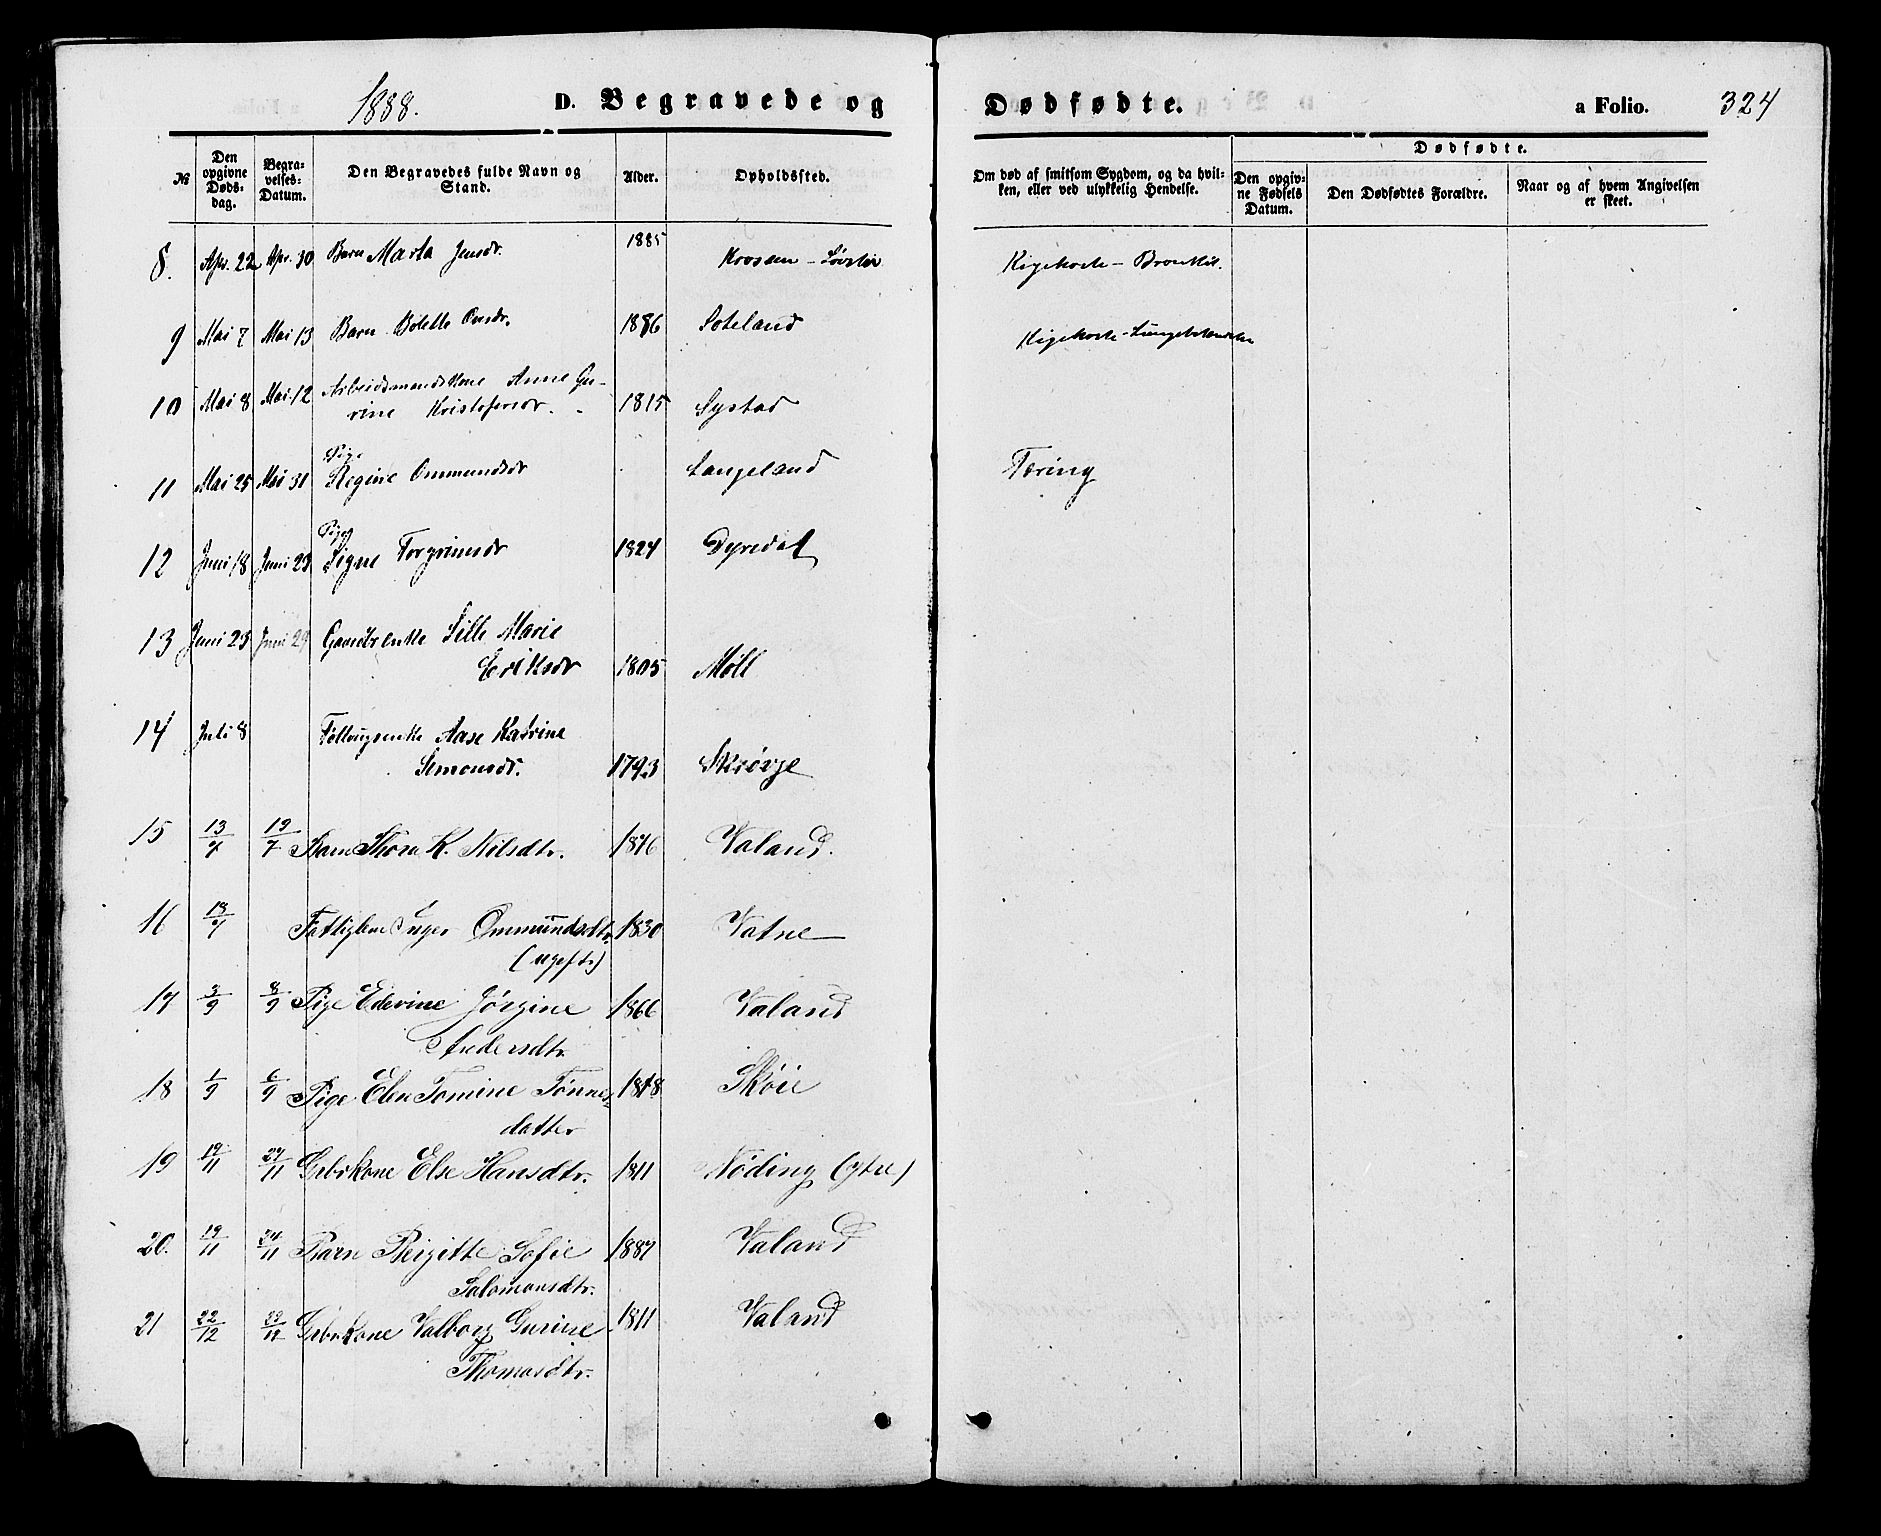 1888.
D. Begravede og Dødfødte.
a Folio. 324
№
Den opgivne Døds-dag.
Begra-velses-Datum.
Den Begravedes fulde Navn og Stand.
Alder.
Opholdssted.
Om død af smitsom Sygdom, og da hvil-ken, eller ved ulykkelig Hendelse.
Dødfødte.
Den opgiv-ne Fødsels Datum.
Den Dødfødtes Forældre.
Naar og af hvem Angivelsen er skeet.
8. Apr. 22 Apr. 30 Barn Marta Jensdr. 1885 Krossen - Kighoste - Bronkit.
9 Mai 7 Mai 13 Barn Bolette 1886 Soteland Kighoste -
10 Mai 8 Mai 12 Arbeidsmandskone Anne Gu-
rine Kristofersdr. 1815 Systad
Pige
11 Mai 25 Mai 31 Regine Ommundsdr Langeland Tæring
Pige
12 Juni 18 Juni 23 Signe Torgrimsdr 1824 Dyredal
13 Juni 23 Juni 29 Gaardbrenke Sille Marie
Eriksdr 1805 Møll
14 Juli 8 Føllougsenke Aase Katrine
Simonsdr. 1793 Skrøvje
15 13/7 19/7 Barn Thora K. Nilsdtr. 1876 Valand.
16 13/7 Fattiglem Inger Ommundsdtr. 1830 Vatne
(ugift)
17 3/9 8/9 Pige Edevine Jørgine 1866 Valand
Andersdtr.
18 1/9 6/9 Pige Elen Tomine Tønnes- 1878 Skøie
datter
19 19/11 27/11 Grbr.kone Else Hansdtr. 1811 Nøding (ytre)
20. 19/11 24/11 Barn Birgitte Sofie 1887 Valand
Salomonsdtr.
21 22/12 Grbr.kone Valborg Gurine 1811 Valand
Thomasdtr.